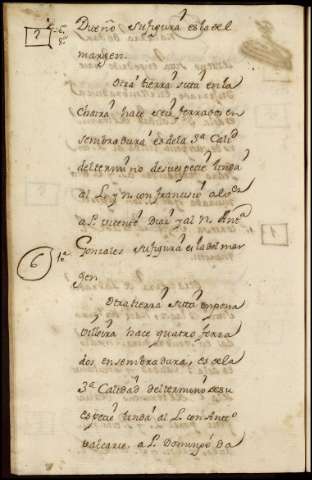 Dueño su figura es la del
margen.
Otra tierra sita en la
Chaira hace seis ferrados en
sembradura es de la 3ª Calid
del termino de su especie linda
al L. y n. con francisco
a P. vicente Diaz y al N. Antª
Gonzales su figura es la del mar
gen
6
Otra tierra sita en pena
villeira hace quatro ferra
dos en sembradura, es de la
3ª Calidad del termino de su
especie linda al L. con Antº
valcarce, a P. Domingo Da